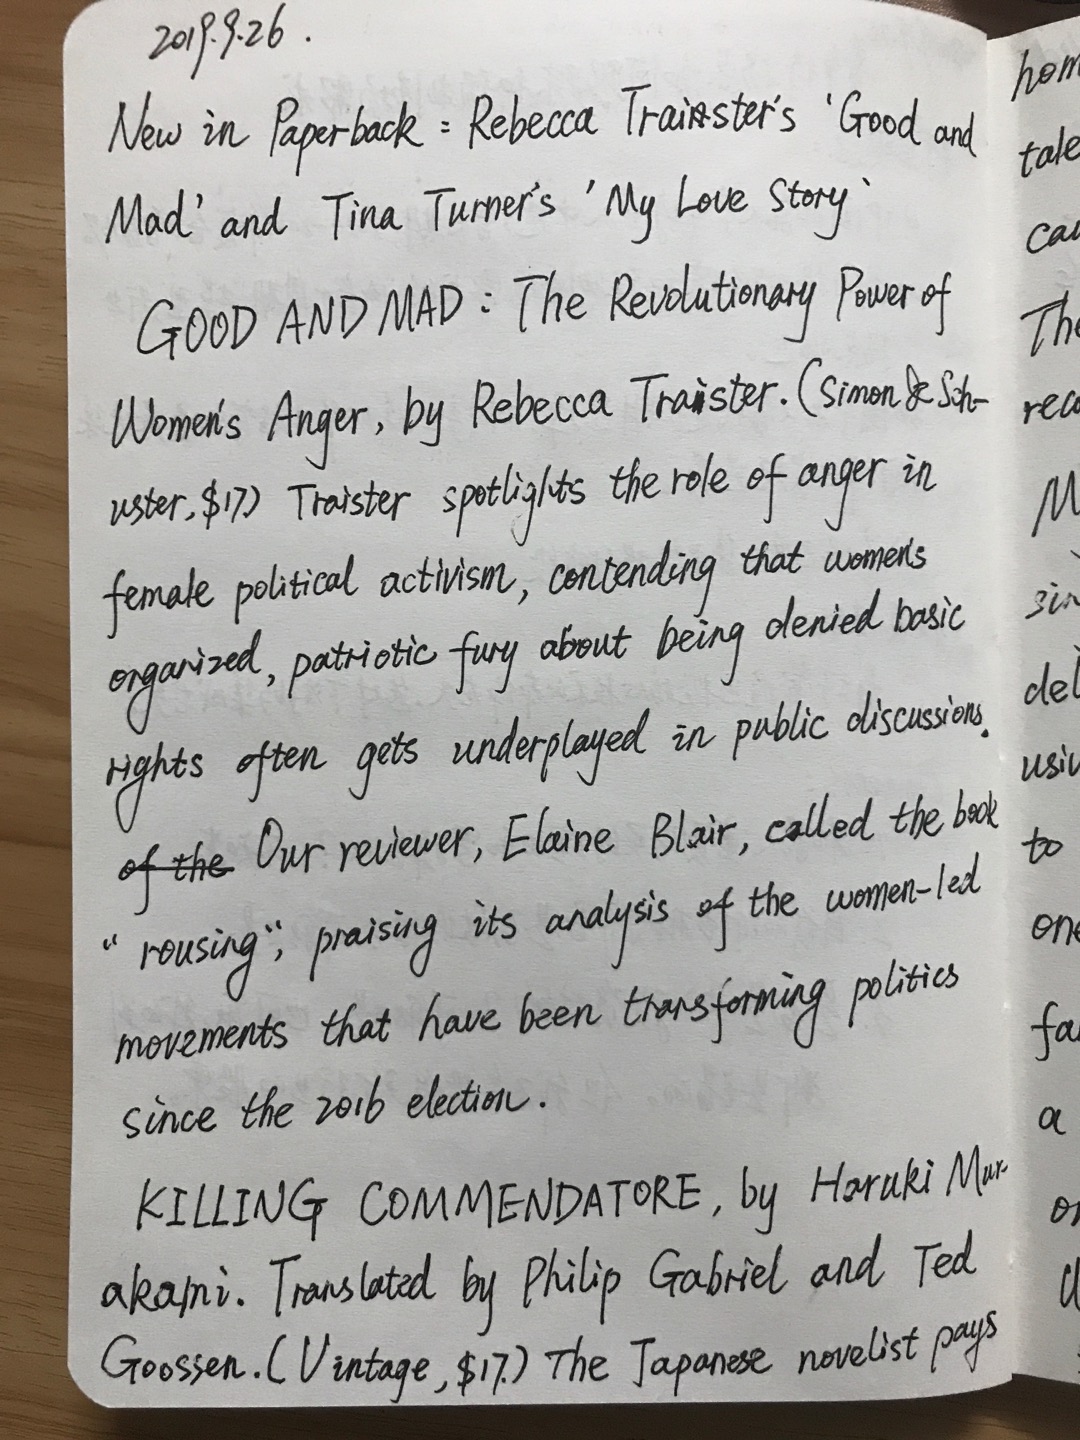 2019.9.26.
New in Paperback : Rebecca Traister's 'Good and
Mad' and Tina Turner's 'My Love Story'
GOOD AND MAD : The Revolutionary Power of
Women's Anger, by Rebecca Traister. (Simon & Sch-
uster, $17.) Traister spotlights the role of anger in
female political activism, contending that women's
organized, patriotic fury about being denied basic
rights often gets underplayed in public discussions.
of the Our reviewer, Elaine Blair, called the book
"rousing", praising its analysis of the women-led
movements that have been transforming politics
since the 2016 election.
KILLING COMMENDATORE, by Haruki Mur-
akami. Translated by Philip Gabriel and Ted
Goossen. (Vintage, $17.) The Japanese novelist pays
tale
The
M
to
a